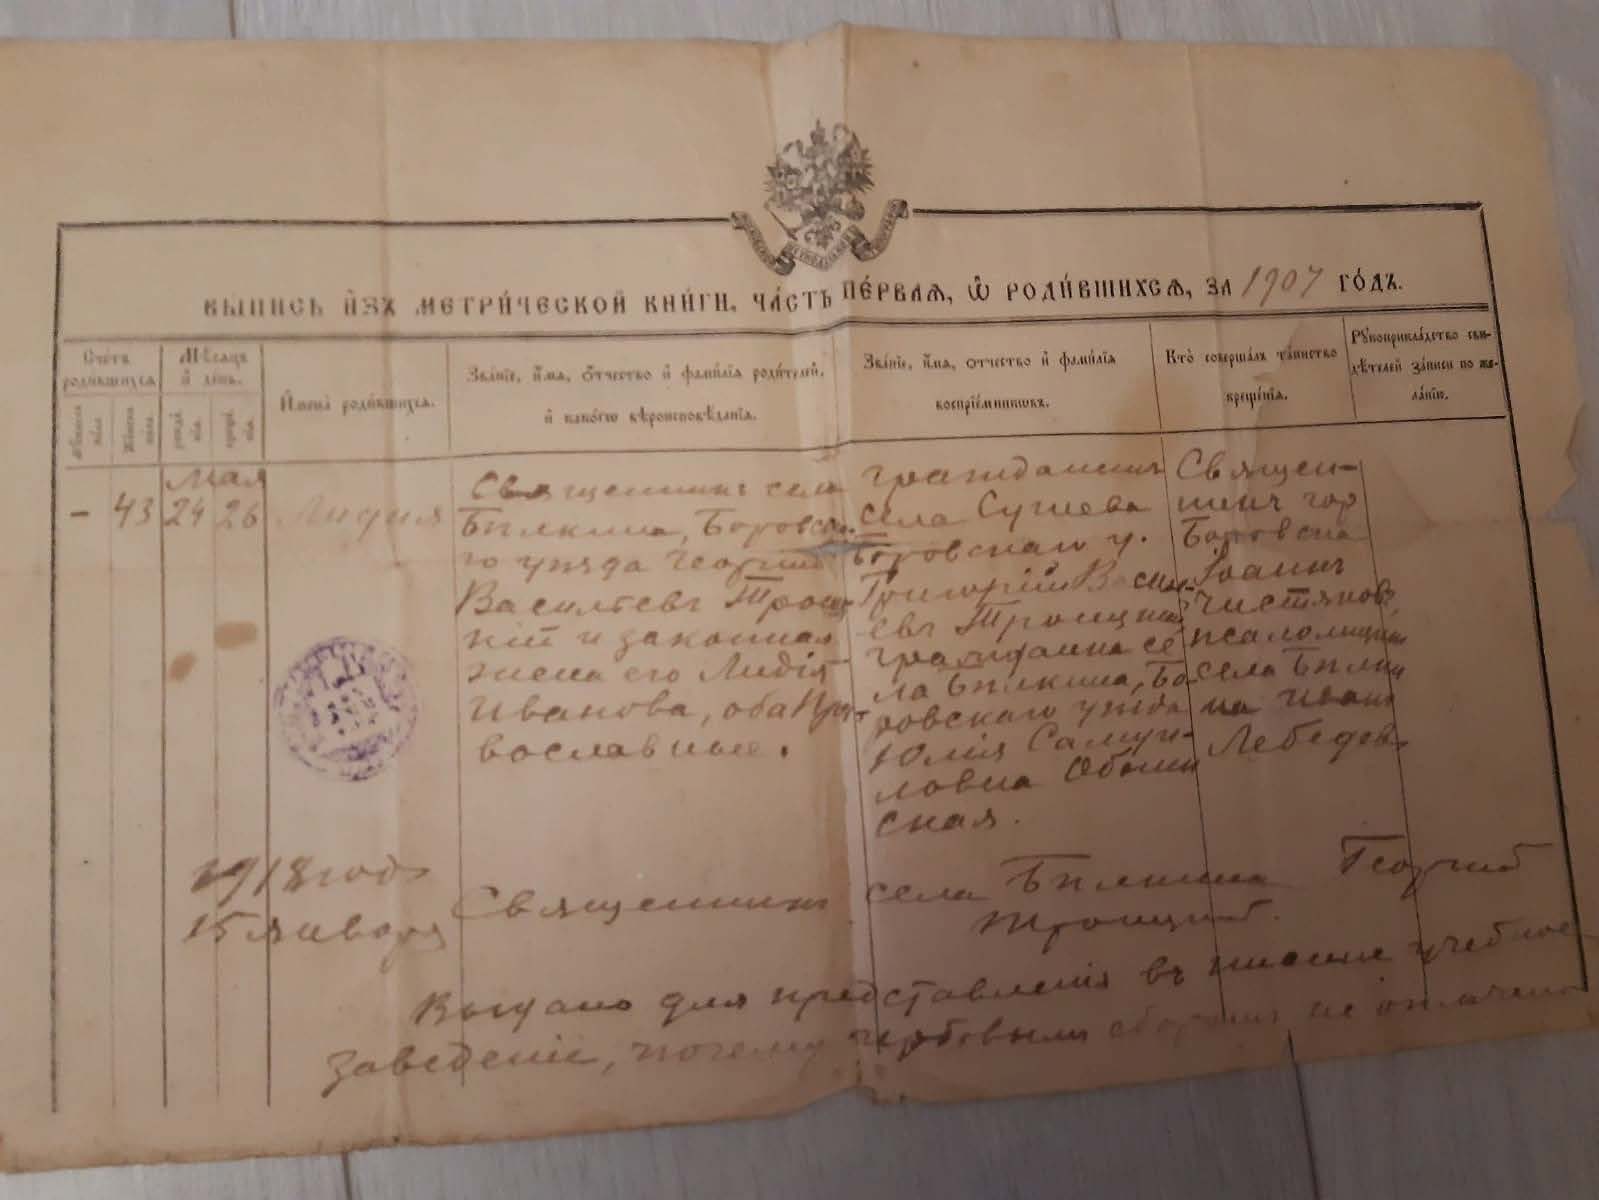 Выпись изъ метрической книги, часть первая, ѡ родившихся, за 1907 годъ.
Счетъ родившихся
Мѣсяцъ и день.
Имена родившихся.
Званіе, имя, отчество и фамилія родителей,
и какогѡ вѣроисповѣданія.
Званіе, имя, отчество и фамилія
воспріемниковъ.
Кто совершалъ таинство
крещенія.
Рукоприкладство сви-
дѣтелей записи по же-
ланію.
Мая
– 43 24 26
Лидия
Священникъ села
Бѣлкина, Боровска-
го уѣзда Георгий
Васильевъ Троиц-
кій и законная
жена его Лидія
Иванова, оба Пра-
вославные.
гражданинъ
села
Боровскаго у.
Григорій Василь-
евъ Троицкій
гражданка се-
ла Бѣлкина, Бо-
ровскаго уѣзда
Юлія Самуи-
ловна Оболен-
ская.
Священ-
никъ гор
Боровска
Іоаннъ
Чистяковъ,
псаломщикъ
села Бѣлки
на Иванъ
Лебедевъ
1918 годъ
15 января
Священникъ села Бѣлкина Георгий
Троицкий.
Выдано для представленія въ учебное
заведеніе, почему гербовымъ сборомъ не оплачено